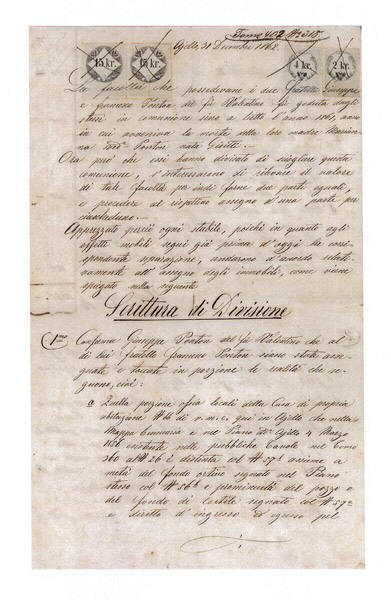 Tomo 402 N° 315
Ajello, 31 Decembre 1862.
15 kr. 15 kr. 4 kr. 2 kr.
La facoltà che possedevano i due fratelli Giuseppe
e Francesco Ponton del fù Valentino fù goduta dagli
stessi in comunione sino a tutto l'anno 1861, anno
in cui avveniva la morte della loro madre Marian-
na Ved.ª Ponton nata
Ora poi che essi hanno divisato di sciogliere questa
comunione, s'interessarono di rilevare il valore
di tale facoltà per indi farne due parti eguali,
e procedere al rispettivo assegno d'una parte per
ciascheduno.
Apprezzato perciò ogni stabile, poichè in quanto agli
effetti mobili seguì già prima d'oggi la corri-
spondente separazione, andarono d'accordo relati-
vamente all'assegno degli immobili, come viene
spiegato nella seguente
Scrittura di Divisione
1mo Confessa Giuseppe Ponton del fù Valentino che al
di lui fratello Francesco Ponton siano stati asse-
gnate e staccate in porzione le realità che se-
guono, cioè:
a Quella porzione ossia locali della Casa di propria
abitazione N° 61 di n.m.c. qui in Ajello che nella
Mappa Censuaria e nel Piano Ajello 4 Marzo
1828 esistente nelle pubbliche Tavole nel Tomo
360 al N° 26 è distinta col N° 57 assieme a
metà del fondo ortivo segnato nel Piano
stesso col N° 56 e promiscuità del pozzo e
del fondo di cortile segnato col N° 57
e diritto d'ingresso ed egresso pel